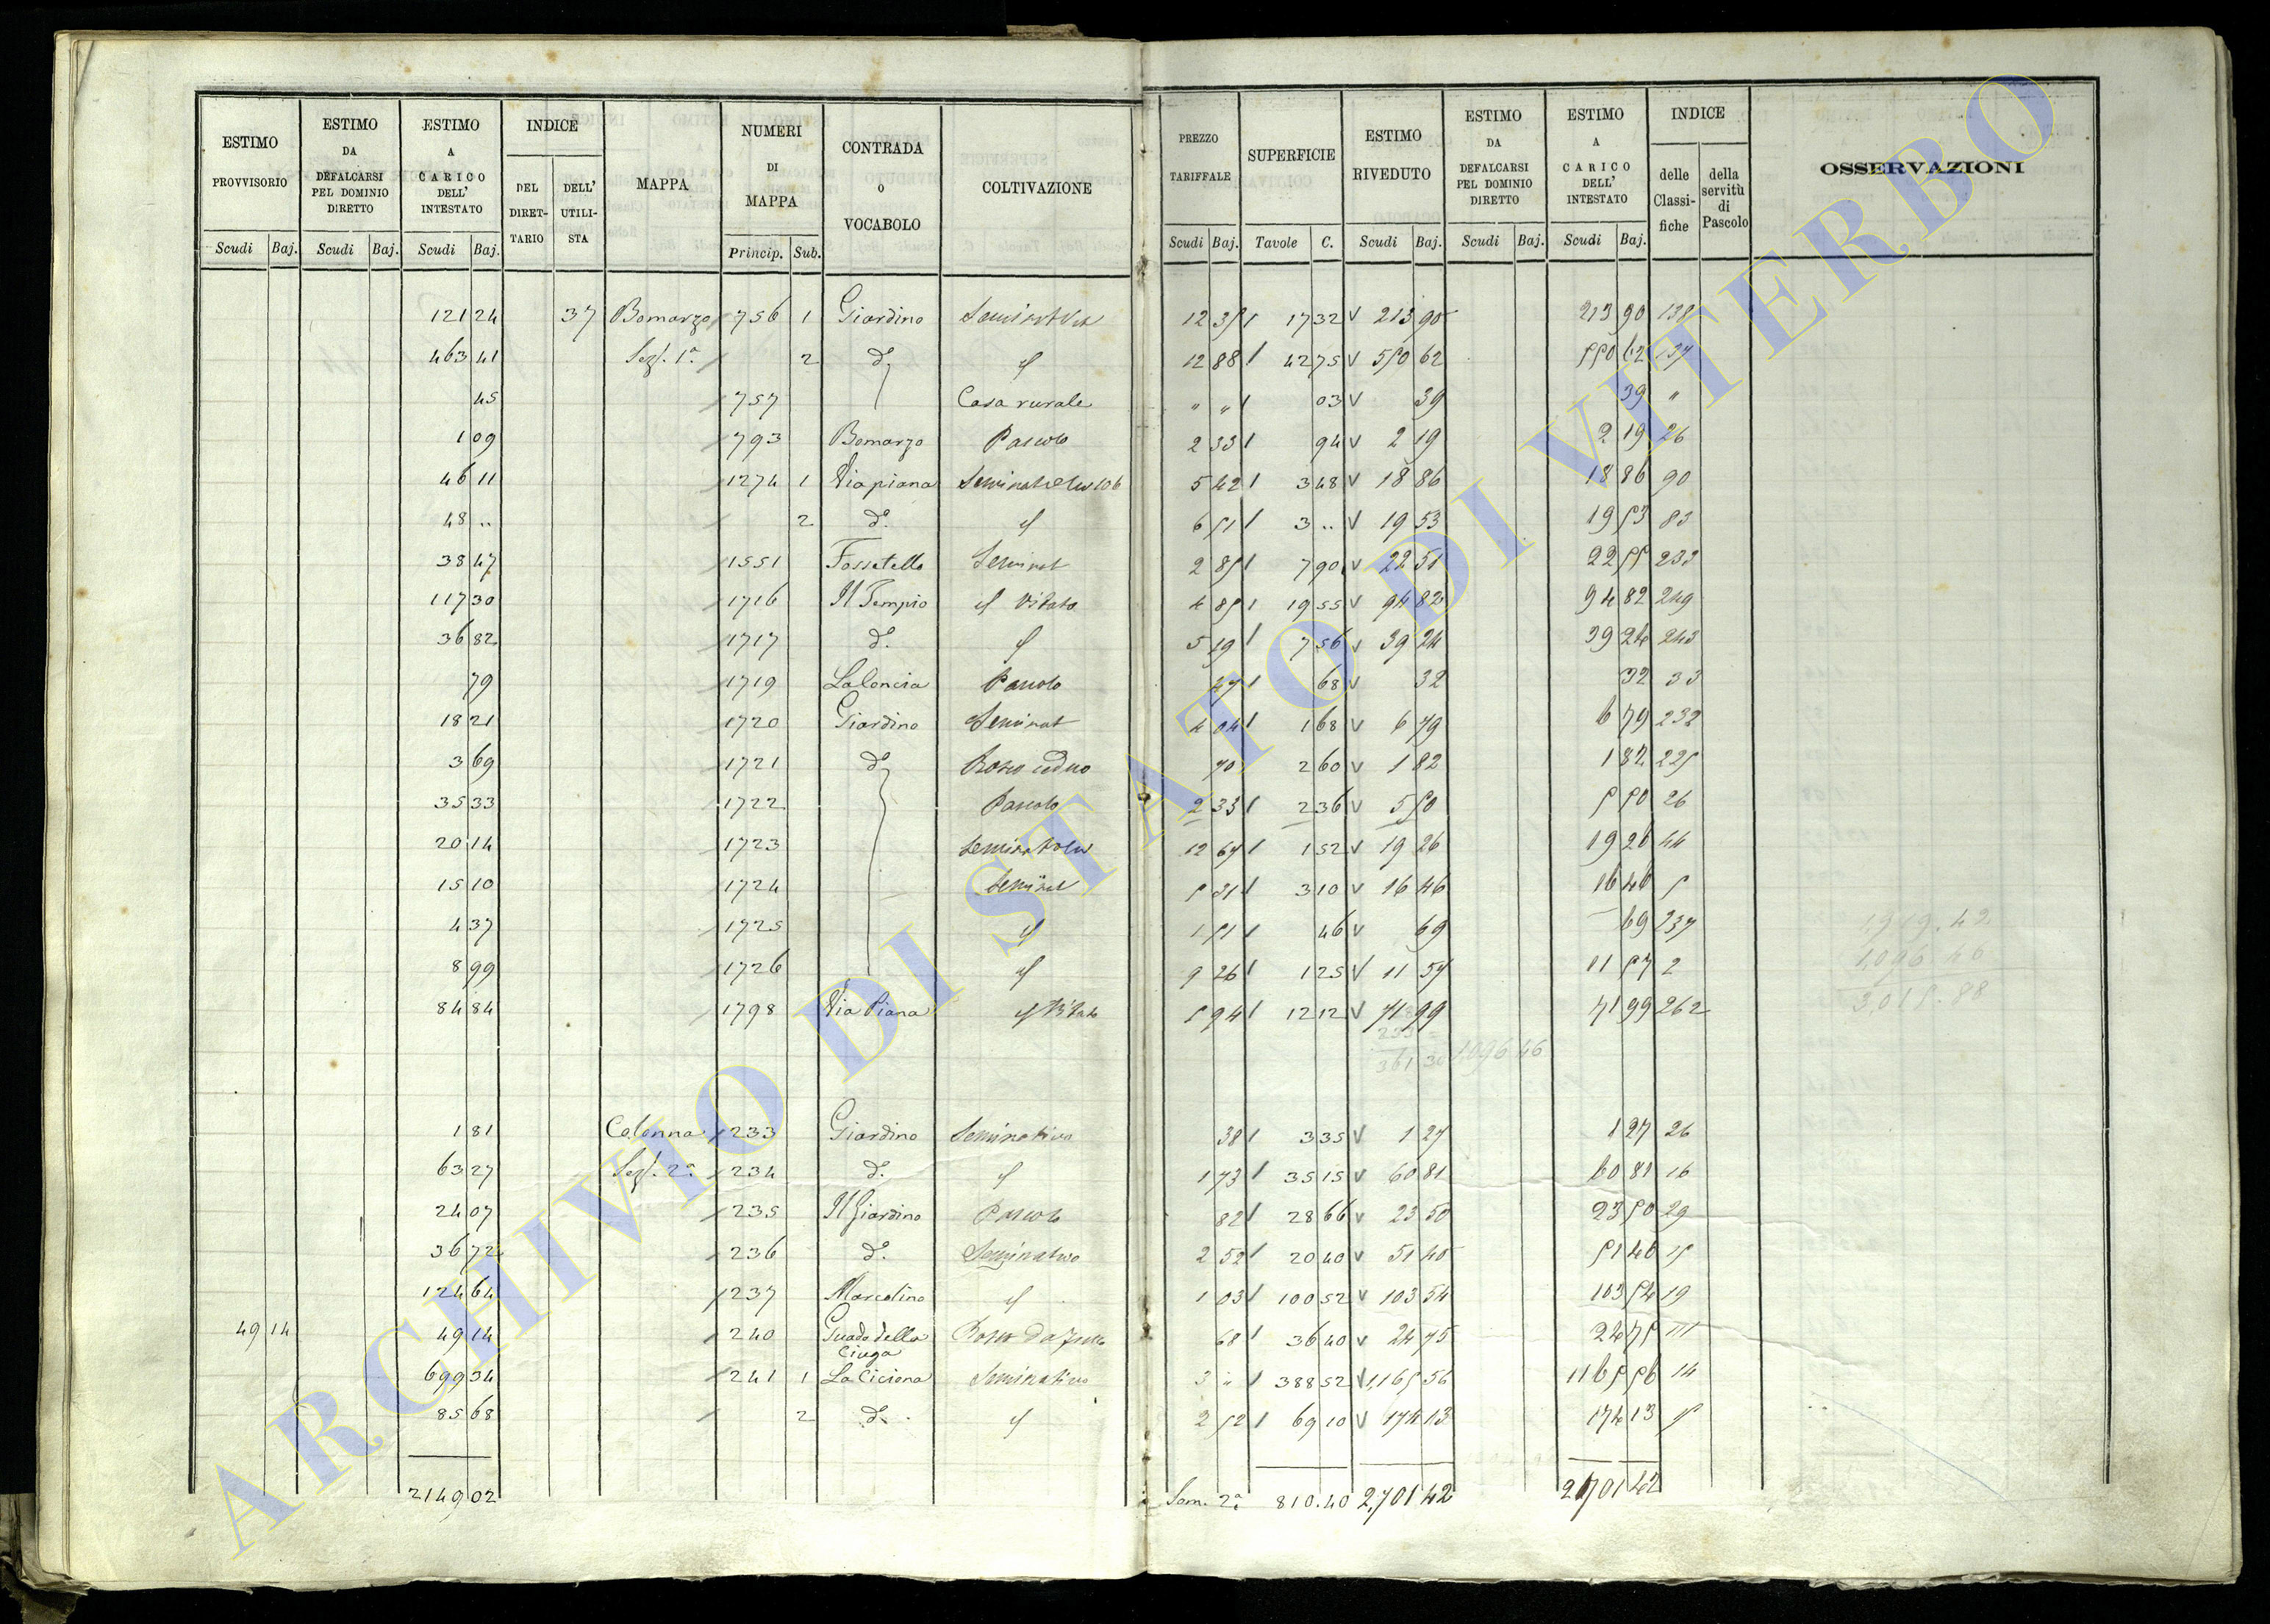 ESTIMO PROVVISORIO | ESTIMO DA DEFALCARSI PEL DOMINIO DIRETTO | ESTIMO A CARICO DELL' INTESTATO | INDICE | MAPPA | NUMERI DI MAPPA | CONTRADA O VOCABOLO | COLTIVAZIONE | PREZZO TARIFFALE | SUPERFICIE | ESTIMO RIVEDUTO | ESTIMO DA DEFALCARSI PEL DOMINIO DIRETTO | ESTIMO A CARICO DELL' INTESTATO | INDICE | OSSERVAZIONI
DEL DIRET-TARIO | DELL' UTILI-STA | delle Classi-fiche | della servitù di Pascolo
Scudi Baj. | Scudi Baj. | Scudi Baj. | Princip. Sub. | Scudi Baj. | Tavole C. | Scudi Baj. | Scudi Baj. | Scudi Baj.
121 24 | 37 | Bomarzo | 756 | 1 | Giardino | 12 35 | 17 32 | 213 90 | 213 90 | 138
463 41 | Sez. 1ª | 2 | d° | 12 88 | 42 75 | 550 62 | 550 62 | 137
45 | 757 | Casa rurale | " " | 03 | 39 | 39 | "
1 09 | 793 | Bomarzo | Pascolo | 2 33 | 94 | 2 19 | 2 19 | 26
46 11 | 1274 | 1 | Via piana | 5 42 | 3 48 | 18 86 | 18 86 | 90
48 .. | 2 | d° | 6 51 | 3 .. | 19 53 | 19 53 | 83
38 47 | 1551 | Fossatello | Seminat | 2 85 | 7 90 | 22 51 | 22 55 | 233
117 30 | 1716 | Il Tempio | Vitato | 4 85 | 19 55 | 94 82 | 94 82 | 249
36 82 | 1717 | d° | 5 19 | 7 56 | 39 24 | 39 24 | 243
79 | 1719 | La Concia | Pascolo | 47 | 68 | 32 | 32 | 33
18 21 | 1720 | Giardino | Seminat | 4 04 | 1 68 | 6 79 | 6 79 | 232
3 69 | 1721 | d° | Bosco ceduo | 70 | 2 60 | 1 82 | 1 82 | 225
35 33 | 1722 | Pascolo | 2 33 | 2 36 | 5 50 | 5 50 | 26
20 14 | 1723 | 12 67 | 1 52 | 19 26 | 19 26 | 44
15 10 | 1724 | Seminat | 5 31 | 3 10 | 16 46 | 16 46 | 5
4 37 | 1725 | 1 51 | 46 | 69 | 69 | 237 | 1919.42
8 99 | 1726 | 9 26 | 1 25 | 11 57 | 11 57 | 2 | 1,096 46
84 84 | 1798 | Via Piana | Vitato | 5 94 | 12 12 | 71 99 | 71 99 | 262 | 3,015.88
361 30 1,096 46
1 81 | Colonna | 233 | Giardino | Seminativo | 38 | 3 35 | 1 27 | 1 27 | 26
63 27 | Sez. 2ª | 234 | d° | 1 73 | 35 15 | 60 81 | 60 81 | 16
24 07 | 235 | Il Giardino | Pascolo | 82 | 28 66 | 23 50 | 23 50 | 29
36 72 | 236 | d° | Seminativo | 2 52 | 20 40 | 51 40 | 51 40 | 15
124 64 | 237 | Marcolino | 1 03 | 100 52 | 103 54 | 103 54 | 19
49 14 | 49 14 | 240 | Guado della | 68 | 36 40 | 24 75 | 24 75 | 111
699 34 | 241 | 1 | La Ciciona | Seminativo | 3 " | 388 52 | 1,165 56 | 1165 56 | 14
85 68 | 2 | d° | 2 52 | 69 10 | 174 13 | 174 13 | 5
2149 02 | Som. 2ª | 810.40 | 2,701 42 | 2701 42
ARCHIVIO DI STATO DI VITERBO